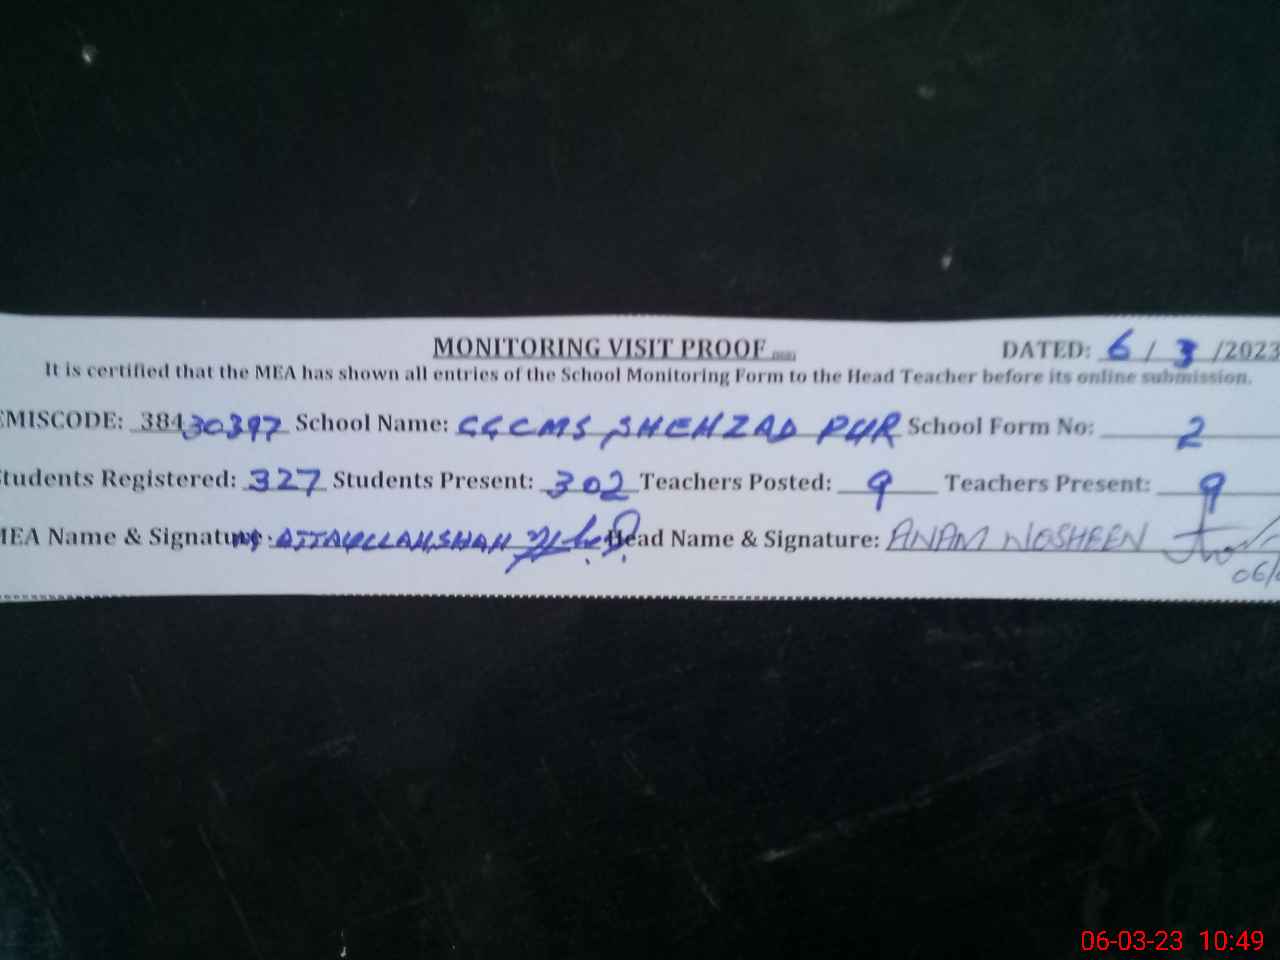 MONITORING VISIT PROOF
DATED: 6 / 3 /2023
It is certified that the MEA has shown all entries of the School Monitoring Form to the Head Teacher before its online submission.
EMISCODE: 38430397 School Name: GGCMS SHEHZAD PUR School Form No: 2
Students Registered: 327 Students Present: 302 Teachers Posted: 9 Teachers Present: 9
MEA Name & Signature: ATTAULLAH SHAH Head Name & Signature: ANAM NOSHEEN
06/
06-03-23 10:49